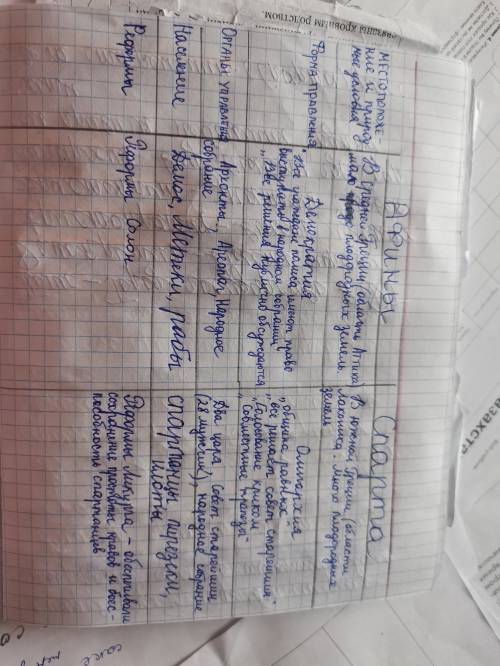 связаны кровным родством.
Афины
Спарта
местоположе-
ние и природ
ные условия
В Средней Греции, область Аттика,
мало плодородных земель.
В южной Греции, области
Лаконика. Много плодородных
земель
Форма правления
Демократия
"Все граждане полиса имеют право
выступать в народном собрании
"Все решения публично обсуждаются
Олигархия
"община равных"
"все решает совет старейшин"
"Голосование криком
"Совместные трапезы"
Органы управления
Архонты, Ареопаг, Народное
собрание
Два царя, Совет старейшин
(28 мужчин), народное собрание
Население
Демос, Метеки, рабы
спартанцы, периэки,
илоты
Реформы
Реформы Солон
Реформы Ликурга – обеспечивали
сохранение простоты нравов и боес-
пособность спартанцев